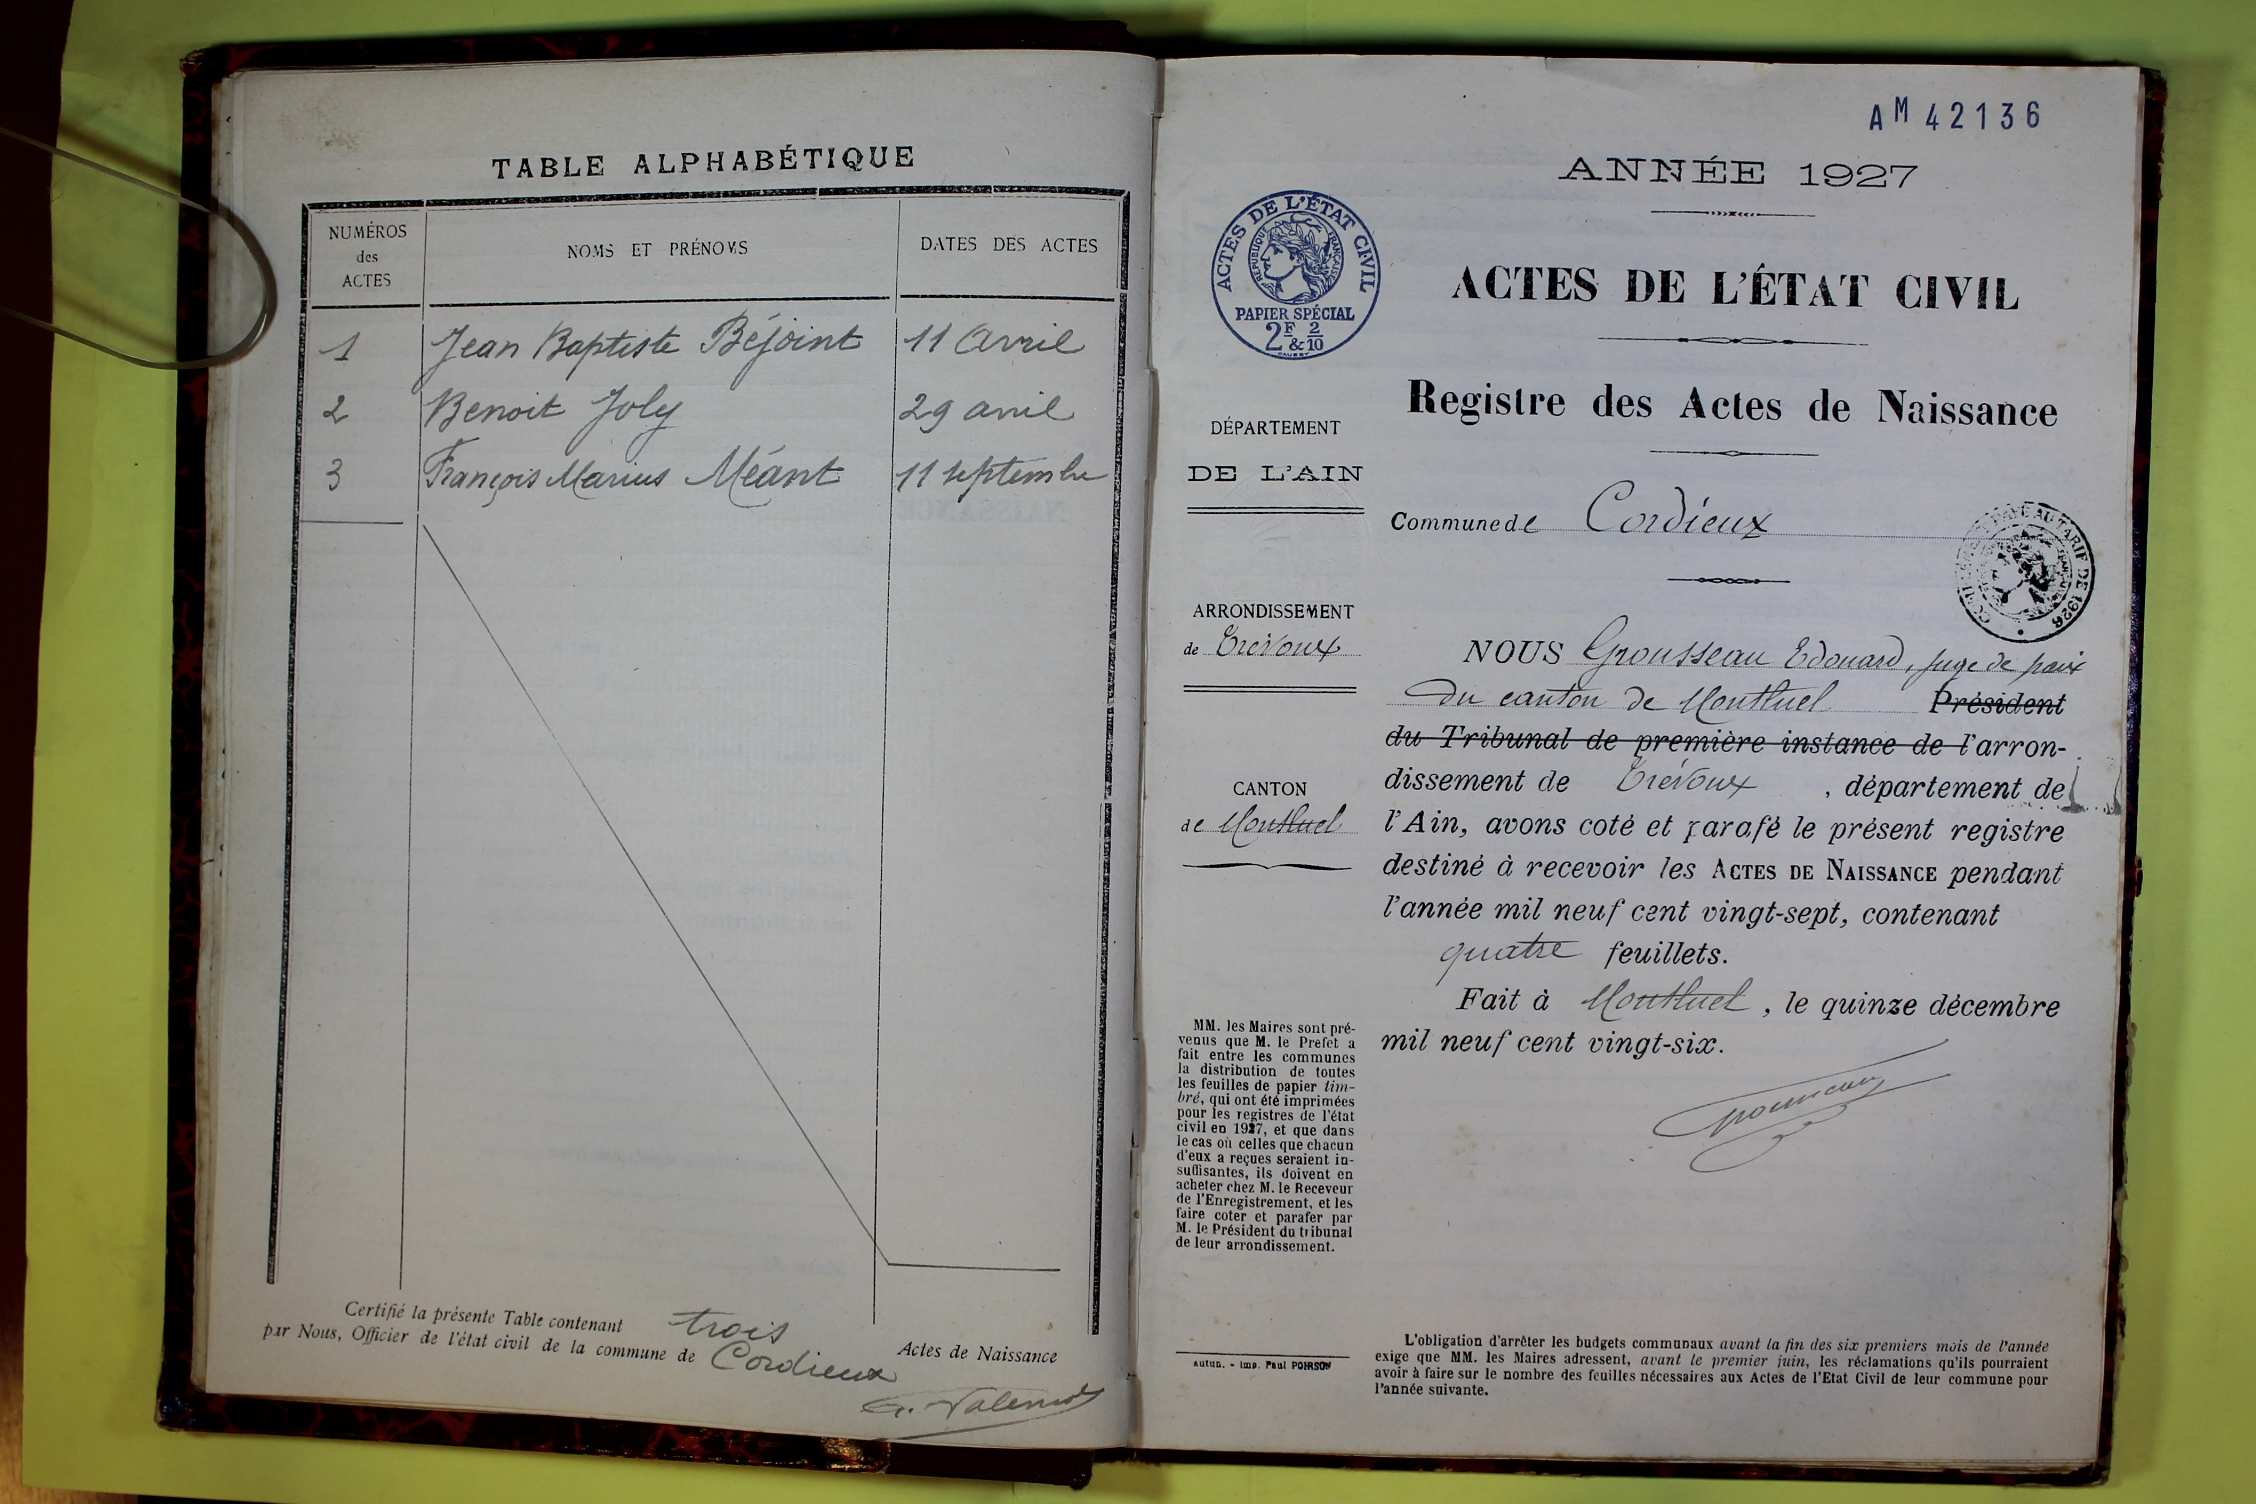 TABLE ALPHABÉTIQUE
NUMÉROS
des
ACTES
NOMS ET PRÉNOMS
DATES DES ACTES
1 Jean Baptiste Béjoint 11 Avril
2 Benoit Joly 29 avril
3 François Marius Méant 11 septembre
Certifié la présente Table contenant trois Actes de Naissance
par Nous, Officier de l'état civil de la commune de Cordieux
AM 42136
ANNÉE 1927
ACTES DE L'ÉTAT CIVIL
RÉPUBLIQUE FRANÇAISE
PAPIER SPÉCIAL
2F & 2/10
ACTES DE L'ÉTAT CIVIL
Registre des Actes de Naissance
DÉPARTEMENT
DE L'AIN
Commune de Cordieux
PAYÉ AU TARIF DE 1926
ARRONDISSEMENT
de Trévoux
CANTON
de Montluel
NOUS Grousseau Edouard, juge de paix
du canton de Montluel Président
du Tribunal de première instance de l'arron-
dissement de Trévoux, département de
l'Ain, avons coté et parafé le présent registre
destiné à recevoir les ACTES DE NAISSANCE pendant
l'année mil neuf cent vingt-sept, contenant
quatre feuillets.
Fait à Montluel, le quinze décembre
mil neuf cent vingt-six.
MM. les Maires sont pré-
venus que M. le Prefet a
fait entre les communes
la distribution de toutes
les feuilles de papier tim-
bré, qui ont été imprimées
pour les registres de l'état
civil en 1927, et que dans
le cas où celles que chacun
d'eux a reçues seraient in-
suffisantes, ils doivent en
acheter chez M. le Receveur
de l'Enregistrement, et les
faire coter et parafer par
M. le Président du tribunal
de leur arrondissement.
Autun. - Imp. Paul POIRSON
L'obligation d'arrêter les budgets communaux avant la fin des six premiers mois de l'année
exige que MM. les Maires adressent, avant le premier juin, les réclamations qu'ils pourraient
avoir à faire sur le nombre des feuilles nécessaires aux Actes de l'Etat Civil de leur commune pour
l'année suivante.